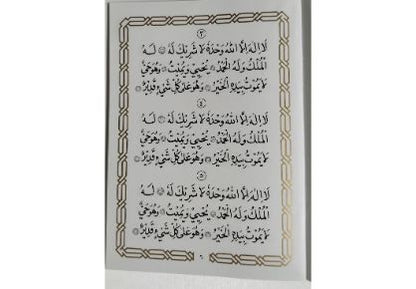 ٣
لَا اِلٰهَ اِلَّا اللهُ وَحْدَهُ لَا شَرِيْكَ لَهُ لَهُ
الْمُلْكُ وَلَهُ الْحَمْدُ يُحْيِيْ وَيُمِيْتُ وَهُوَ حَيٌّ
لَا يَمُوْتُ بِيَدِهِ الْخَيْرُ وَهُوَ عَلٰى كُلِّ شَيْءٍ قَدِيْرٌ
٤
لَا اِلٰهَ اِلَّا اللهُ وَحْدَهُ لَا شَرِيْكَ لَهُ لَهُ
الْمُلْكُ وَلَهُ الْحَمْدُ يُحْيِيْ وَيُمِيْتُ وَهُوَ حَيٌّ
لَا يَمُوْتُ بِيَدِهِ الْخَيْرُ وَهُوَ عَلٰى كُلِّ شَيْءٍ قَدِيْرٌ
٥
لَا اِلٰهَ اِلَّا اللهُ وَحْدَهُ لَا شَرِيْكَ لَهُ لَهُ
الْمُلْكُ وَلَهُ الْحَمْدُ يُحْيِيْ وَيُمِيْتُ وَهُوَ حَيٌّ
لَا يَمُوْتُ بِيَدِهِ الْخَيْرُ وَهُوَ عَلٰى كُلِّ شَيْءٍ قَدِيْرٌ